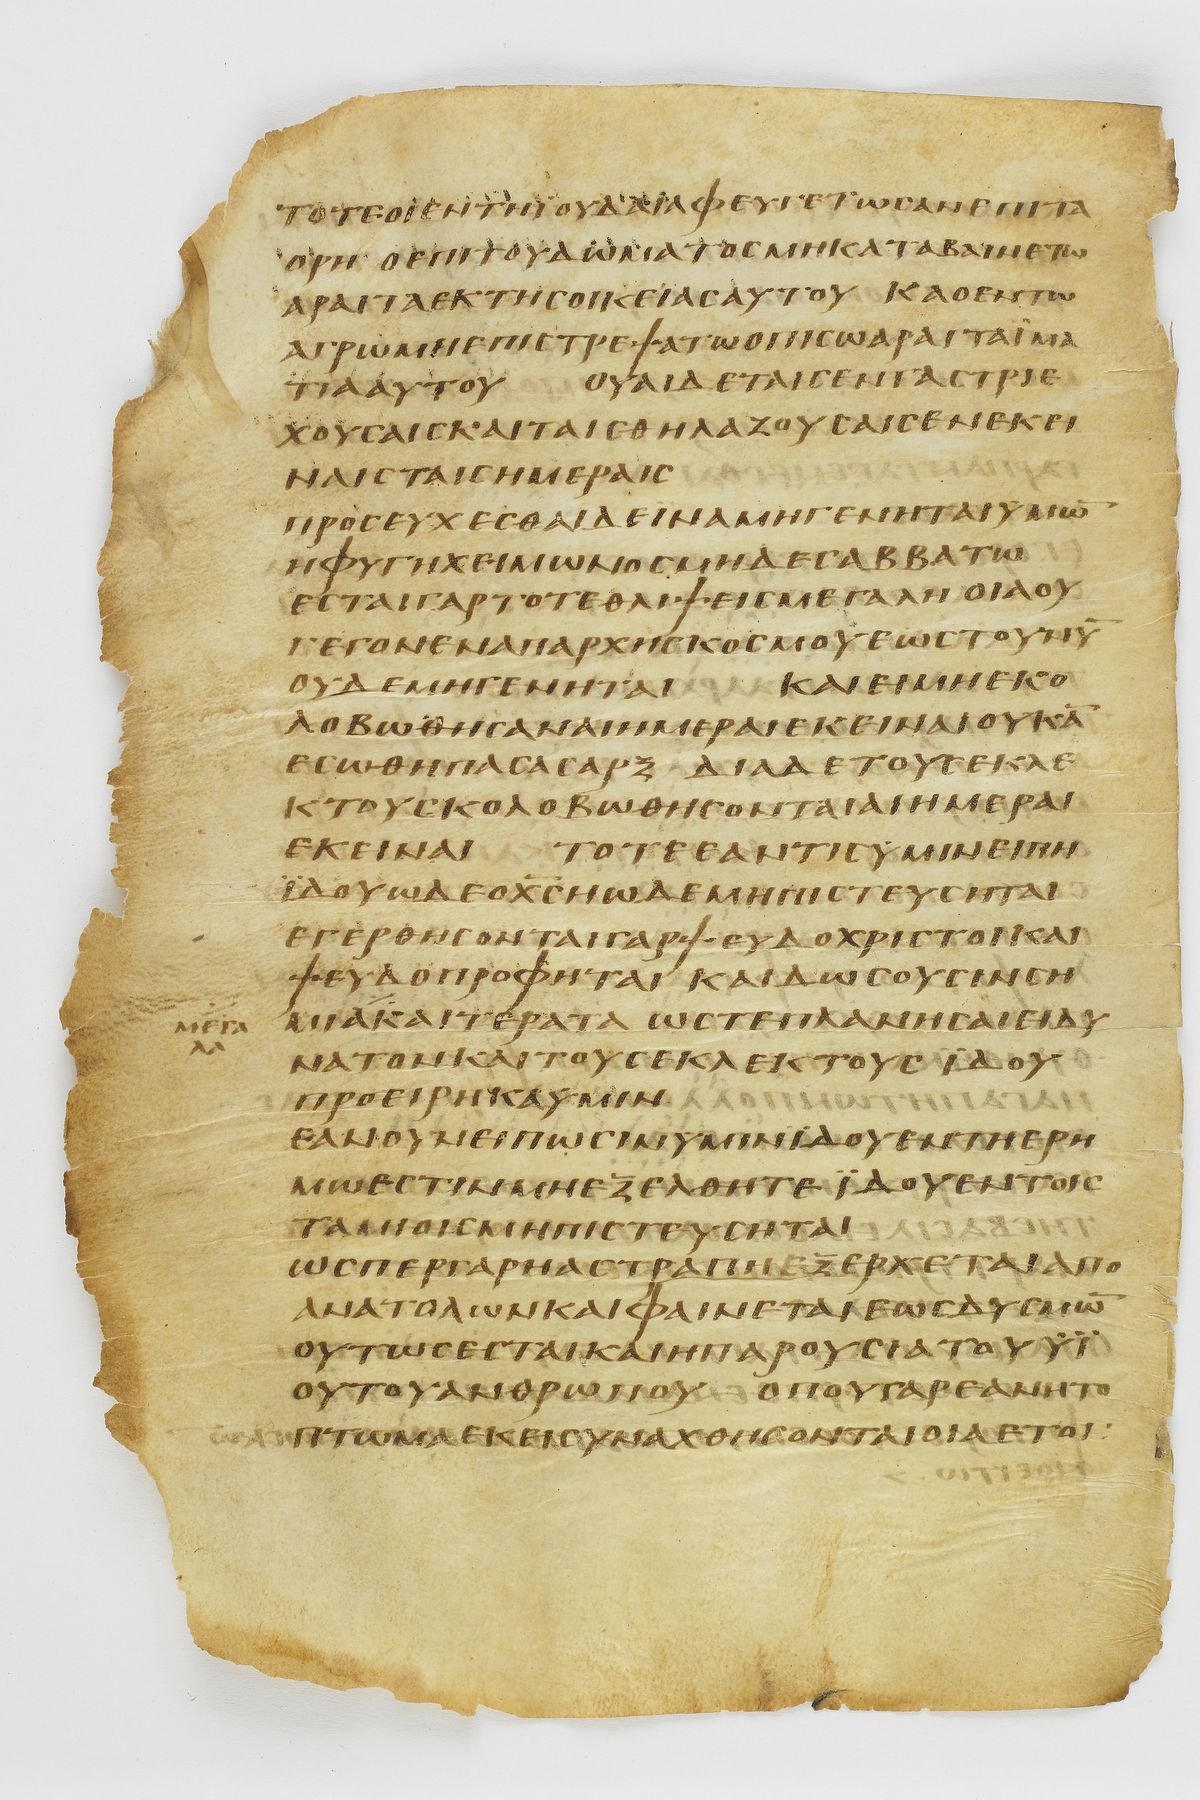 ΤΟΤΕΟΙΕΝΤΗΙΟΥΔΑΙΑΦΕΥΓΕΤΩCΑΝΕΠΙΤΑ
ΟΡΗ ΟΕΠΙΤΟΥΔΩΜΑΤΟCΜΗΚΑΤΑΒΑΙΝΕΤΩ
ΑΡΑΙΤΑΕΚΤΗCΟΙΚΕΙΑCΑΥΤΟΥ ΚΑΟΕΝΤΩ
ΑΓΡΩΜΗΕΠΙCΤΡΕΨΑΤΩΟΠΙCΩΑΡΑΙΤΑΪΜΑ
ΤΙΑΑΥΤΟΥ ΟΥΑΙΔΕΤΑΙCΕΝΓΑCΤΡΙΕ
ΧΟΥCΑΙCΚΑΙΤΑΙCΘΗΛΑΖΟΥCΑΙCΕΝΕΚΕΙ
ΝΑΙCΤΑΙCΗΜΕΡΑΙC
ΠΡΟCΕΥΧΕCΘΑΙΔΕΙΝΑΜΗΓΕΝΗΤΑΙΫΜΩ̅
ΗΦΥΓΗΧΕΙΜΩΝΟCΜΗΔΕCΑΒΒΑΤΩ
ΕCΤΑΙΓΑΡΤΟΤΕΘΛΙΨΕΙCΜΕΓΑΛΗ ΟΙΑΟΥ
ΓΕΓΟΝΕΝΑΠΑΡΧΗCΚΟCΜΟΥΕΩCΤΟΥΝΥ̅
ΟΥΔΕΜΗΓΕΝΗΤΑΙ ΚΑΙΕΙΜΗΕΚΟ
ΛΟΒΩΘΗCΑΝΑΙΗΜΕΡΑΙΕΚΕΙΝΑΙΟΥΚΑ̅
ΕCΩΘΗΠΑCΑCΑΡΞ ΔΙΑΔΕΤΟΥCΕΚΛΕ
ΚΤΟΥCΚΟΛΟΒΩΘΗCΟΝΤΑΙΑΙΗΜΕΡΑΙ
ΕΚΕΙΝΑΙ ΤΟΤΕΕΑΝΤΙCΥΜΙΝΕΙΠΗ
ΪΔΟΥΩΔΕΟΧ̅C̅ΗΩΔΕΜΗΠΙCΤΕΥCΗΤΑΙ
ΕΓΕΡΘΗCΟΝΤΑΙΓΑΡΨΕΥΔΟΧΡΙCΤΟΙΚΑΙ
ΨΕΥΔΟΠΡΟΦΗΤΑΙ ΚΑΙΔΩCΟΥCΙΝCΗ
ΜΙΑΚΑΙΤΕΡΑΤΑ ΩCΤΕΠΛΑΝΗCΑΙΕΙΔΥ
ΜΕΓΑ
ΛΑ
ΝΑΤΟΝΚΑΙΤΟΥCΕΚΛΕΚΤΟΥC ΪΔΟΥ
ΠΡΟΕΙΡΗΚΑΥΜΙΝ
ΕΑΝΟΥΝΕΙΠΩCΙΝΥΜΙΝΪΔΟΥΕΝΤΗΕΡΗ
ΜΩΕCΤΙΝΜΗΕΞΕΛΘΗΤΕ ΪΔΟΥΕΝΤΟΙC
ΤΑΜΙΟΙCΜΗΠΙCΤΕΥCΗΤΑΙ
ΩCΠΕΡΓΑΡΗΑCΤΡΑΠΗΕΞΕΡΧΕΤΑΙΑΠΟ
ΑΝΑΤΟΛΩΝΚΑΙΦΑΙΝΕΤΑΙΕΩCΔΥCΜΩ̅
ΟΥΤΩCΕCΤΑΙΚΑΙΗΠΑΡΟΥCΙΑΤΟΥΫΪ
ΟΥΤΟΥΑΝΘΡΩΠΟΥ ΟΠΟΥΓΑΡΕΑΝΗΤΟ
ΠΤΩΜΑΕΚΕΙCΥΝΑΧΘΗCΟΝΤΑΙΟΙΑΕΤΟΙ: